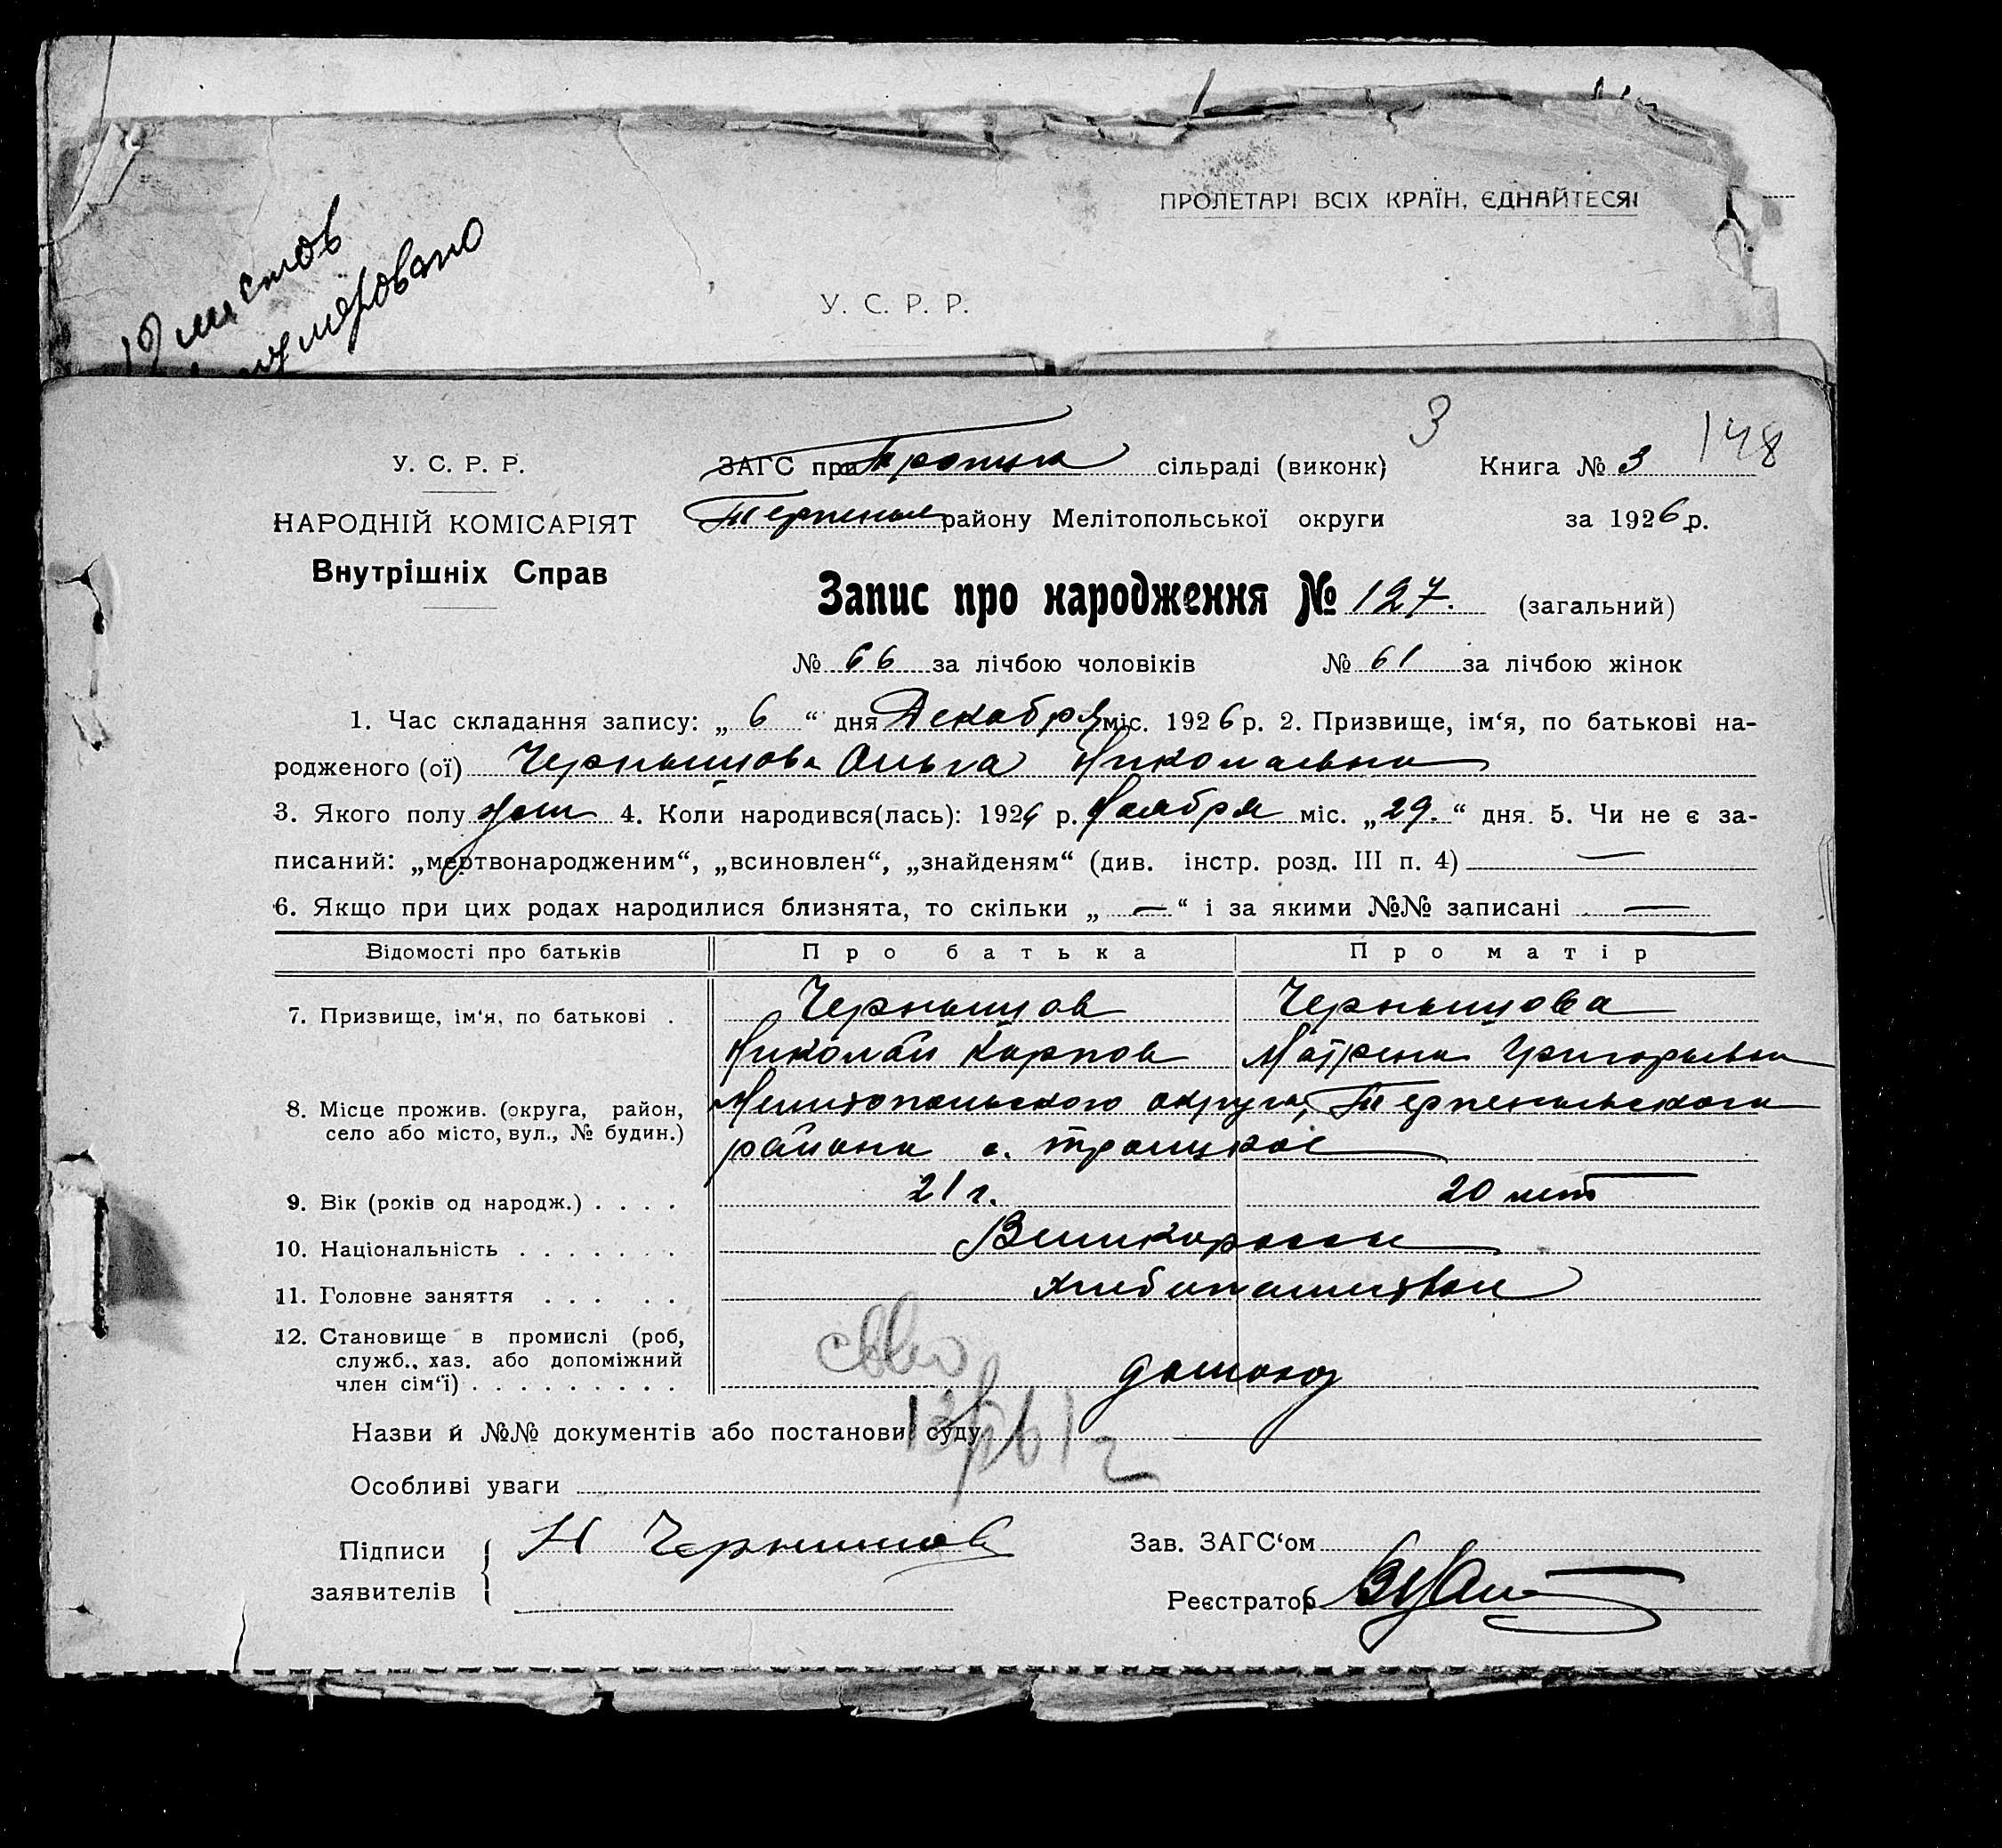 ПРОЛЕТАРІ ВСІХ КРАЇН, ЄДНАЙТЕСЯ!
листов
У. С. Р. Р.
3
148
У. С. Р. Р.
ЗАГС при Троицк сільраді (виконк) Книга № 3
НАРОДНІЙ КОМІСАРІЯТ
Терпеньев району Мелітопольської округи за 1926 р.
Внутрішніх Справ
Запис про народження № 127. (загальний)
№ 66 за лічбою чоловіків № 61 за лічбою жінок
1. Час складання запису: „ 6 “ дня Декабря міс. 1926 р. 2. Призвище, ім‘я, по батькові на-
родженого (ої) Чернышова Ольга Николаевна
3. Якого полу жен 4. Коли народився(лась): 1926 р. Ноября міс. „29.“ дня. 5. Чи не є за-
писаний: „мертвонародженим“, „всиновлен“, „знайденям“ (див. інстр. розд. III п. 4) —
6. Якщо при цих родах народилися близнята, то скільки „ — “ і за якими №№ записані —
Відомості про батьків Про батька Про матір
7. Призвище, ім‘я, по батькові . Чернышов Чернышова
Николай Карпов Матрена Григорьевна
8. Місце прожив. (округа, район, Мелитопольского округа, Терпеньевского
село або місто, вул., № будин.) района с. Троицкое
9. Вік (років од народж.) . . . . 21 г. 20 лет
10. Національність . . . . . . . Великороссы
11. Головне заняття . . . . . Хлебопашеством
12. Становище в промислі (роб,
служб., хаз. або допоміжний
член сім‘ї) . . . . . . . . .
Назви й №№ документів або постанови суду
Особливі уваги
Підписи
заявителів
Н Чернышов
Зав. ЗАГС‘ом
Реєстратор